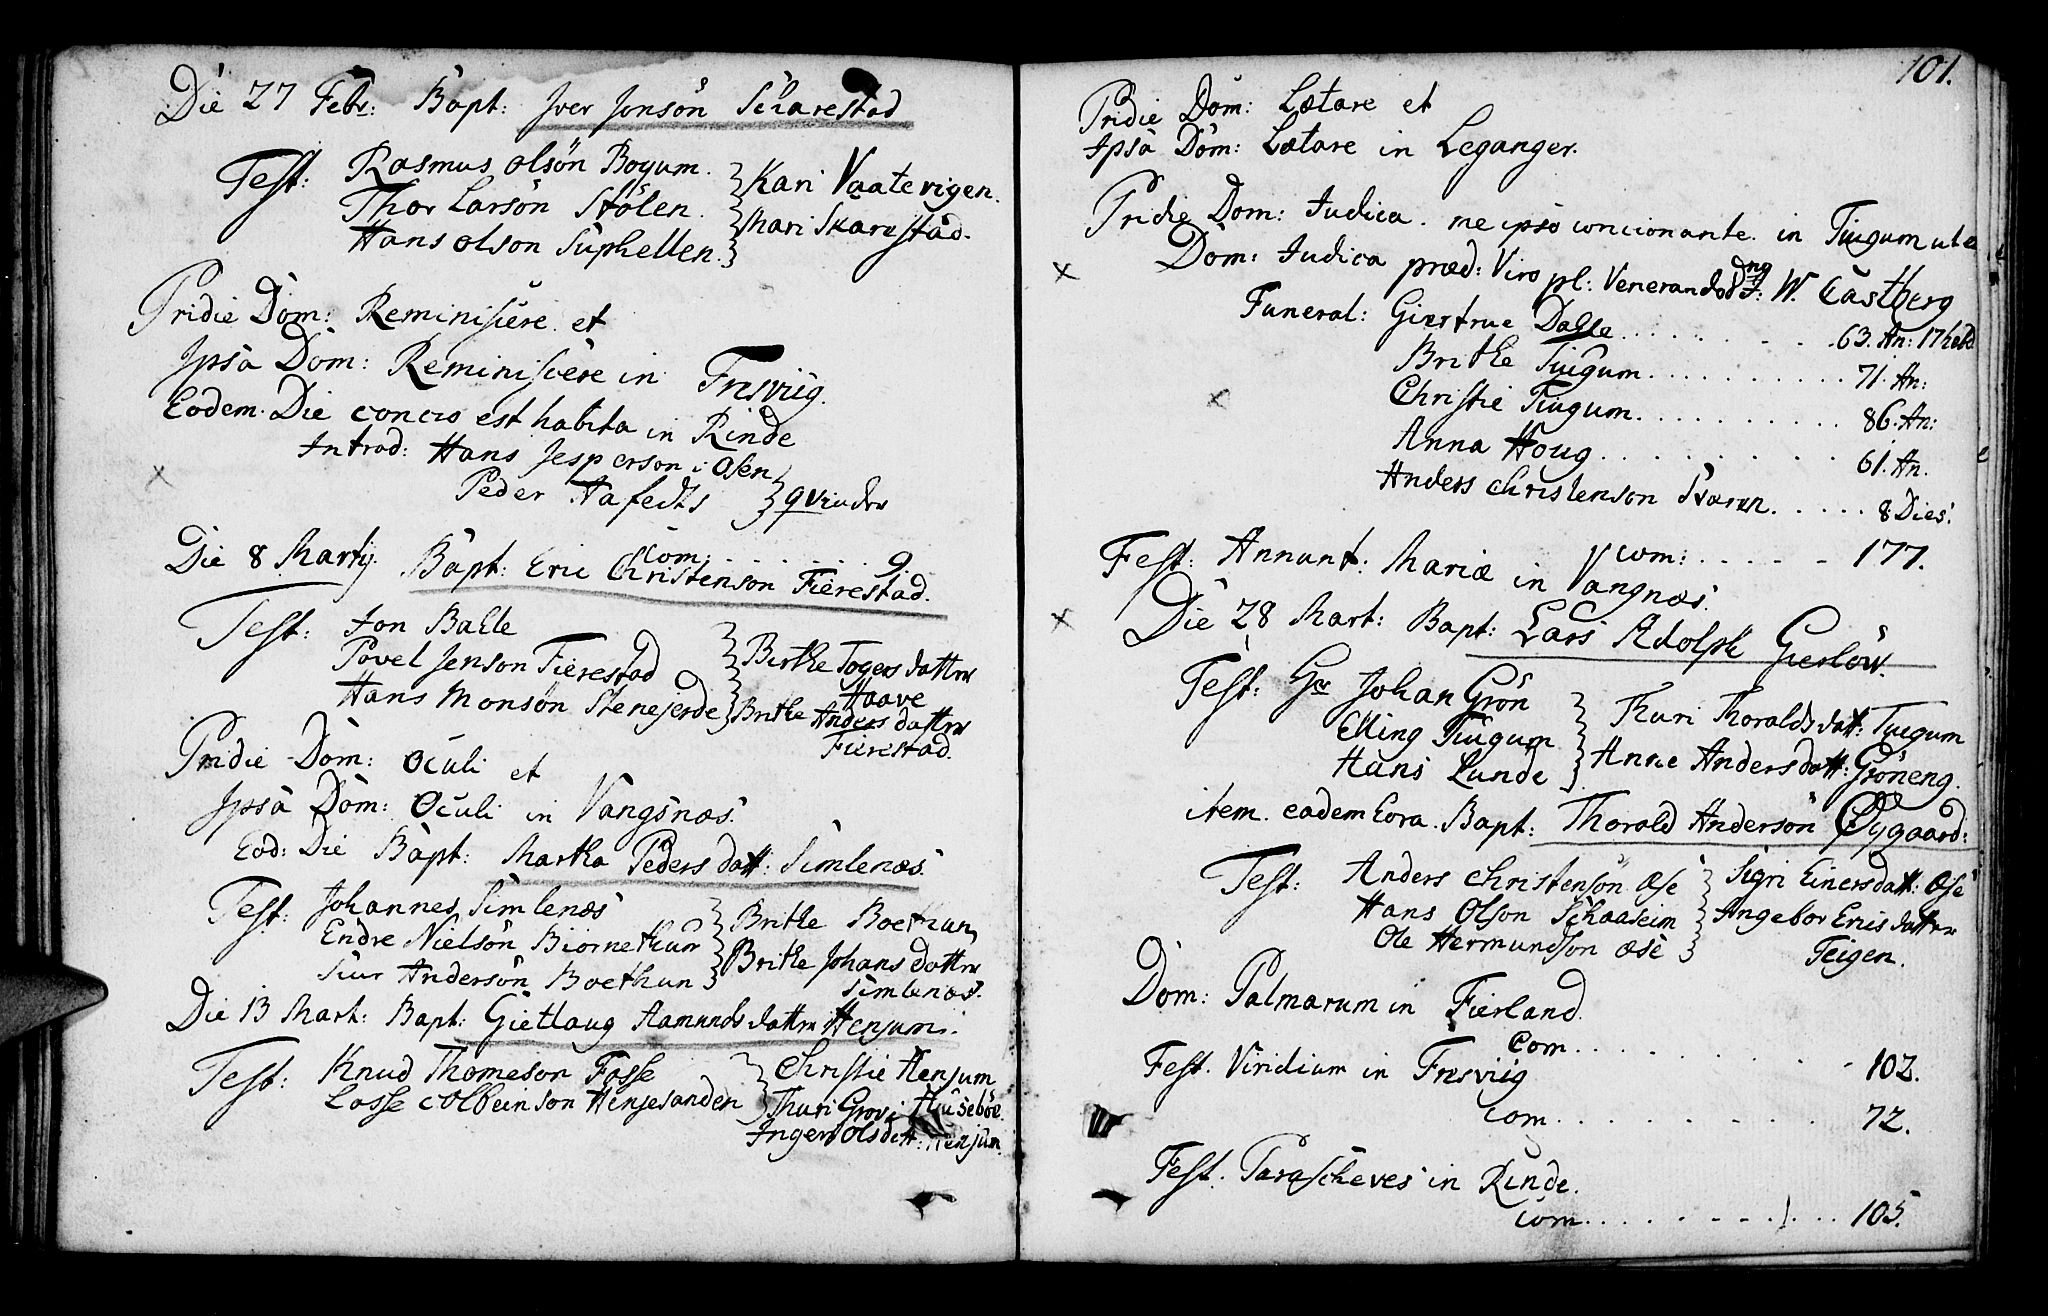 Die 27 Febr: Bapt: Iver Jonsön Skarestad
Test: Rasmus olsön Boyum.
Thor Larsön Stölen.
Hans olson Suphellen.
Kari Vaatevigen.
Mari Skarestad.
Pridie Dom: Reminiscere et
Ipsa Dom: Reminiscere in Fresviig.
Eodem Die concio est habita in Rinde
Introd: Hans Jesperson i Osen
Peder Aafedts
qvinder
Com: . . . . . . . 9.
Die 8 Martij. Bapt: Eric Christenson Fierestad.
Test: Jon Balle
Povel Jenson Fierestad
Hans Monsön Stenejerde
Birthe Togersdatter
Haave
Brithe Andersdatter
Fierestad.
Pridie Dom: Oculi et
Ipsa Dom: Oculi in Vangsnæs.
Eod: Die Bapt: Martha Pedersdatt: Simlenæs.
Test: Johannes Simlenæs
Endre Nielsön Biörnethun
Siur Andersön Boethun
Brithe Boethun
Brithe Johansdatter
Simlenæs.
Die 13 Mart: Bapt: Gietlaug Aamundsdatter Henjum.
Test: Knud Thomeson Fosse
Lasse Colbeinson Henjesanden
Christie Henjum
Thuri Grov i Huseböe.
Inger Olsdatt: Henjum.
101.
Pridie Dom: Lætare et
Ipsa Dom: Lætare in Leganger.
Pridie Dom: Judica. me ipso concionante. in Tiugum ut e
Dom: Judica præd: Viro pl: Venerando Dng J: W. Castberg
Funeral: Giertrue Dalle . . . . . . 63. An: 17 hebd
Brithe Tiugum . . . . . . 71. An:
Christie Tiugum . . . . . . 86. An:
Anna Houg . . . . . . 61. An.
Anders Christenson Skaren . . . . . 8 Dies.
com: . . . . . 177.
Fest: Annunt: Mariæ in Vangnæs.
Die 28 Mart: Bapt: Lars Adolph Gierlöw.
Test: Hr Johan Grön
Elling Tiugum
Hans Lunde
Thuri Thoraldsdatt: Tiugum
Anne Andersdatt: Gröneng.
item. eadem hora. Bapt: Thorald Andersön Øygaard:
Test: Anders Christensön Æse
Hans Olson Skaaseim
Ole Hermundson Æse
Sigri Einersdatt: Æse
Angebor Ericsdatter
Teigen.
Dom: Palmarum in Fierland.
Com . . . . . . . 102.
Fest. Viridium in Fresviig
com . . . . . . . 72.
Fest. Parascheves in Rinde.
com . . . . . . . 105.